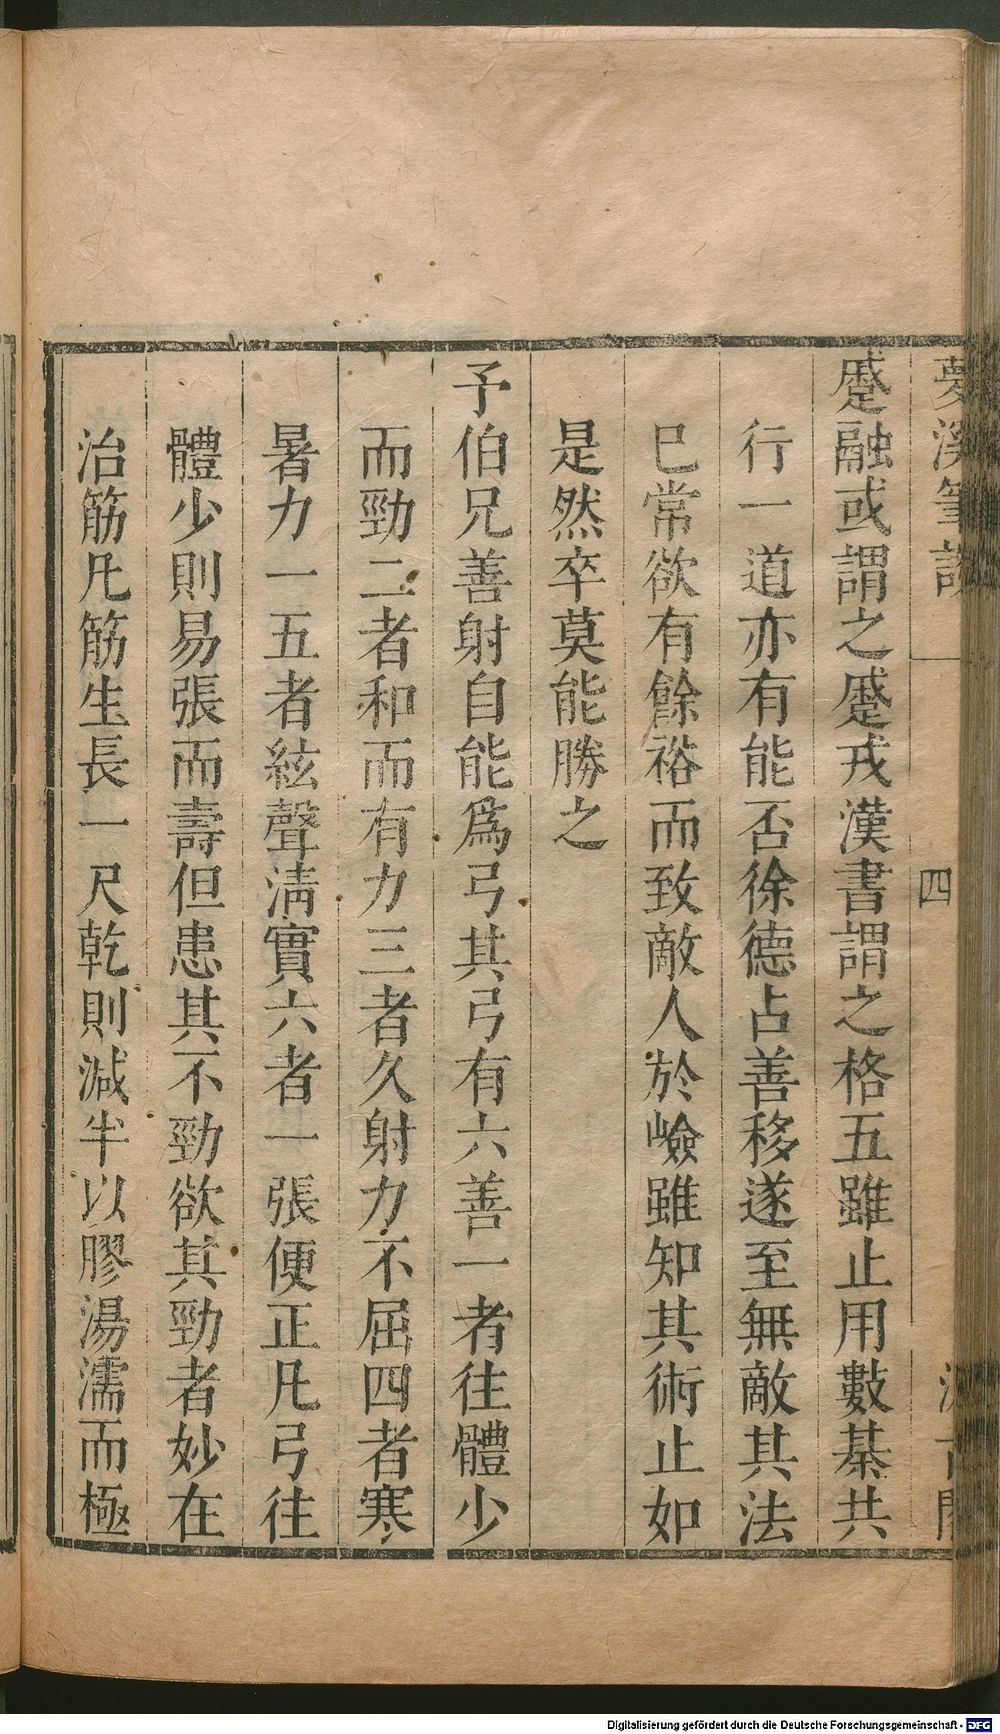 夢溪筆談
四
汲古閣
蹙融或謂之蹙戎漢書謂之格五雖止用數棊共
行一道亦有能否徐德占善移遂至無敵其法
已常欲有餘裕而致敵人於嶮雖知其術止如
是然卒莫能勝之
予伯兄善射自能爲弓其弓有六善一者往體少
而勁二者和而有力三者久射力不屈四者寒
暑力一五者絃聲清實六者一張便正凡弓往
體少則易張而壽但患其不勁欲其勁者妙在
治筋凡筋生長一尺乾則減半以膠湯濡而極
Digitalisierung gefördert durch die Deutsche Forschungsgemeinschaft - DFG